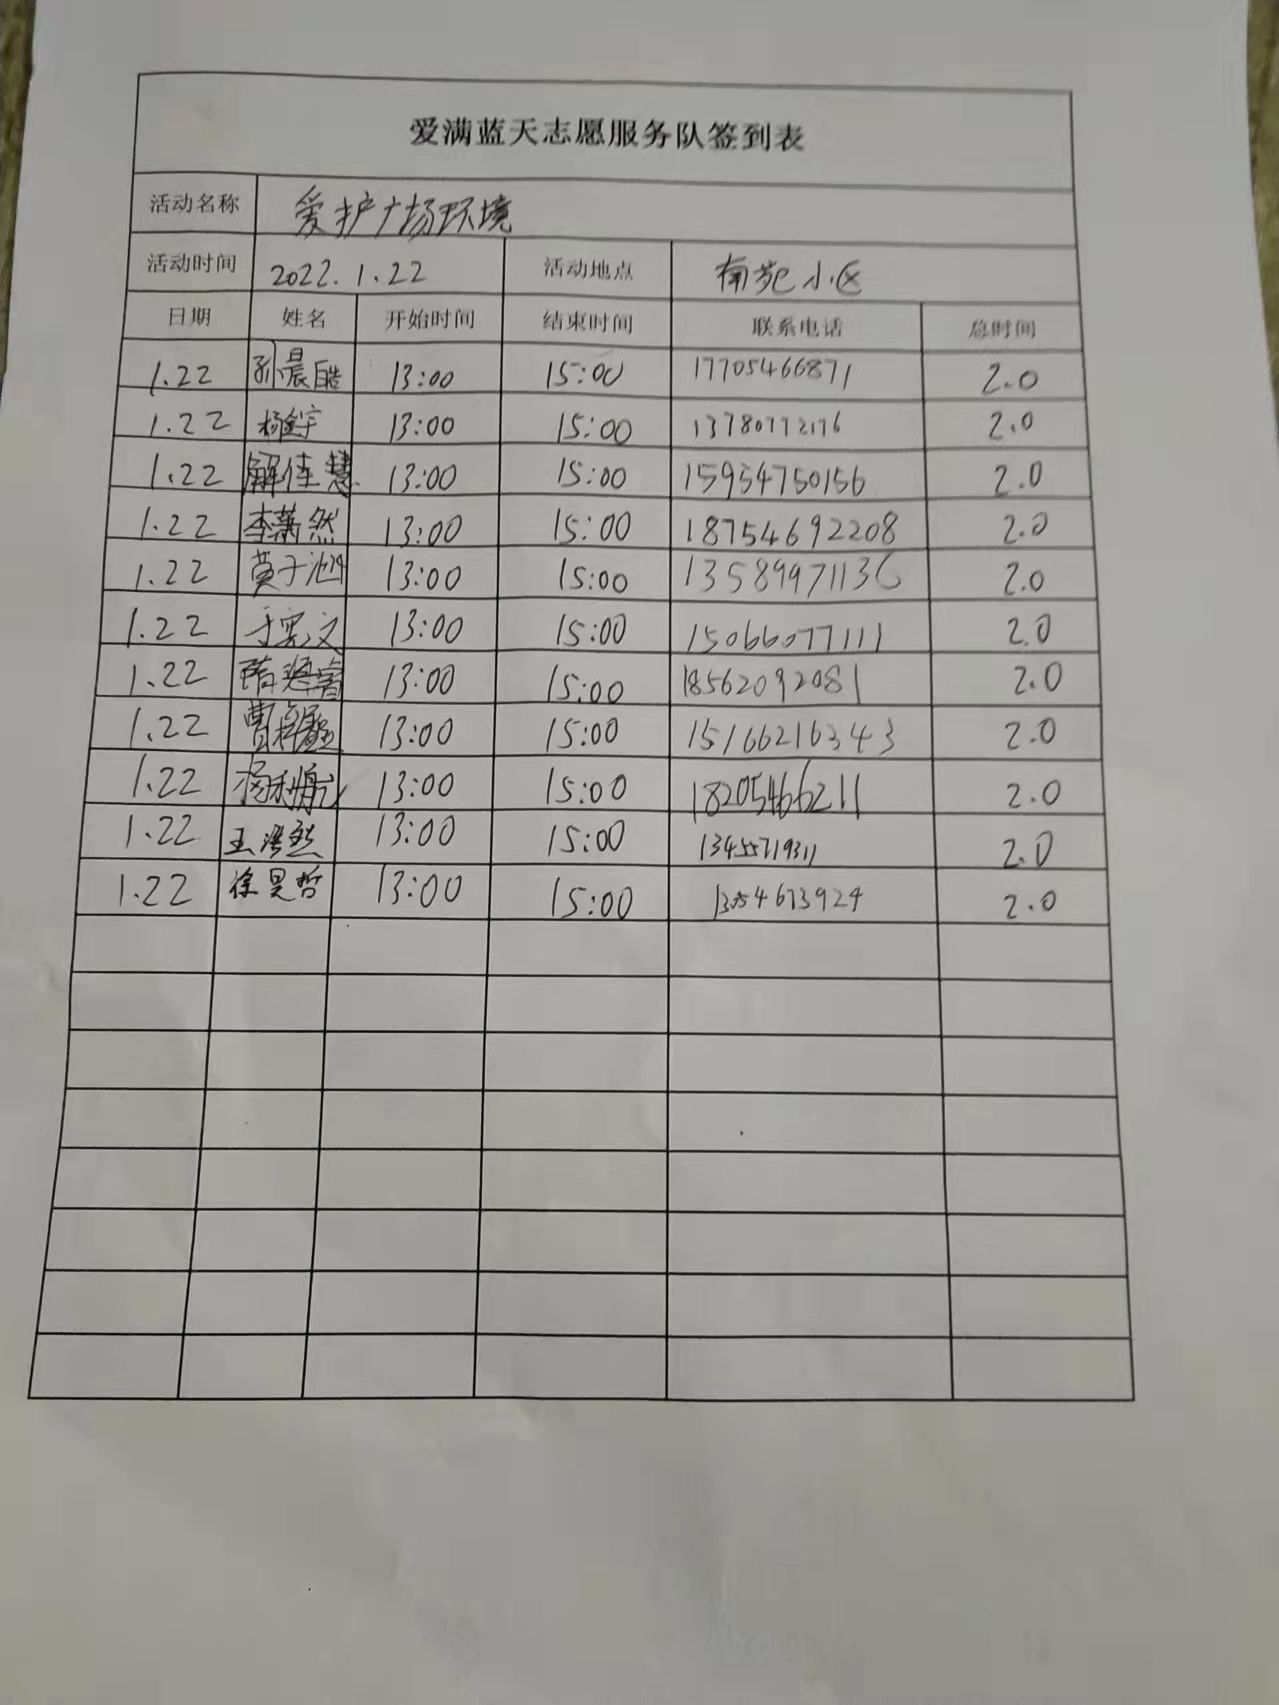 爱满蓝天志愿服务队签到表
活动名称 爱护广场环境
活动时间 2022.1.22 活动地点 南苑小区
日期 姓名 开始时间 结束时间 联系电话 总时间
1.22 孙晨皓 13:00 15:00 17705466871 2.0
1.22 杨鑫宇 13:00 15:00 13780772176 2.0
1.22 解佳慧 13:00 15:00 15954750156 2.0
1.22 李萧然 13:00 15:00 18754692208 2.0
1.22 黄子泇 13:00 15:00 13589971136 2.0
1.22 于奕文 13:00 15:00 15066077111 2.0
1.22 13:00 15:00 18562092081 2.0
1.22 13:00 15:00 15166216343 2.0
1.22 13:00 15:00 18205466211 2.0
1.22 王浩然 13:00 15:00 13455719311 2.0
1.22 徐昊哲 13:00 15:00 2.0